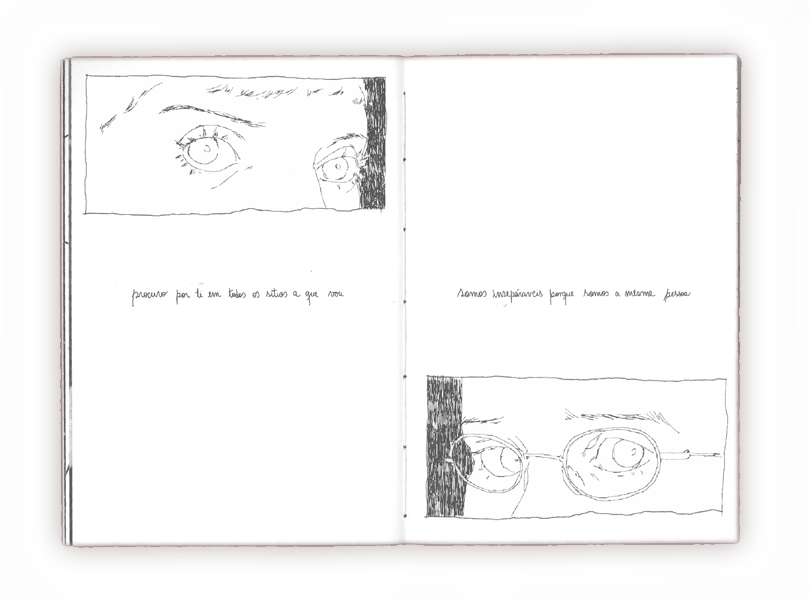 procuro por ti em todos os sitios a que vou
somos inseparaveis porque somos a mesma pessoa